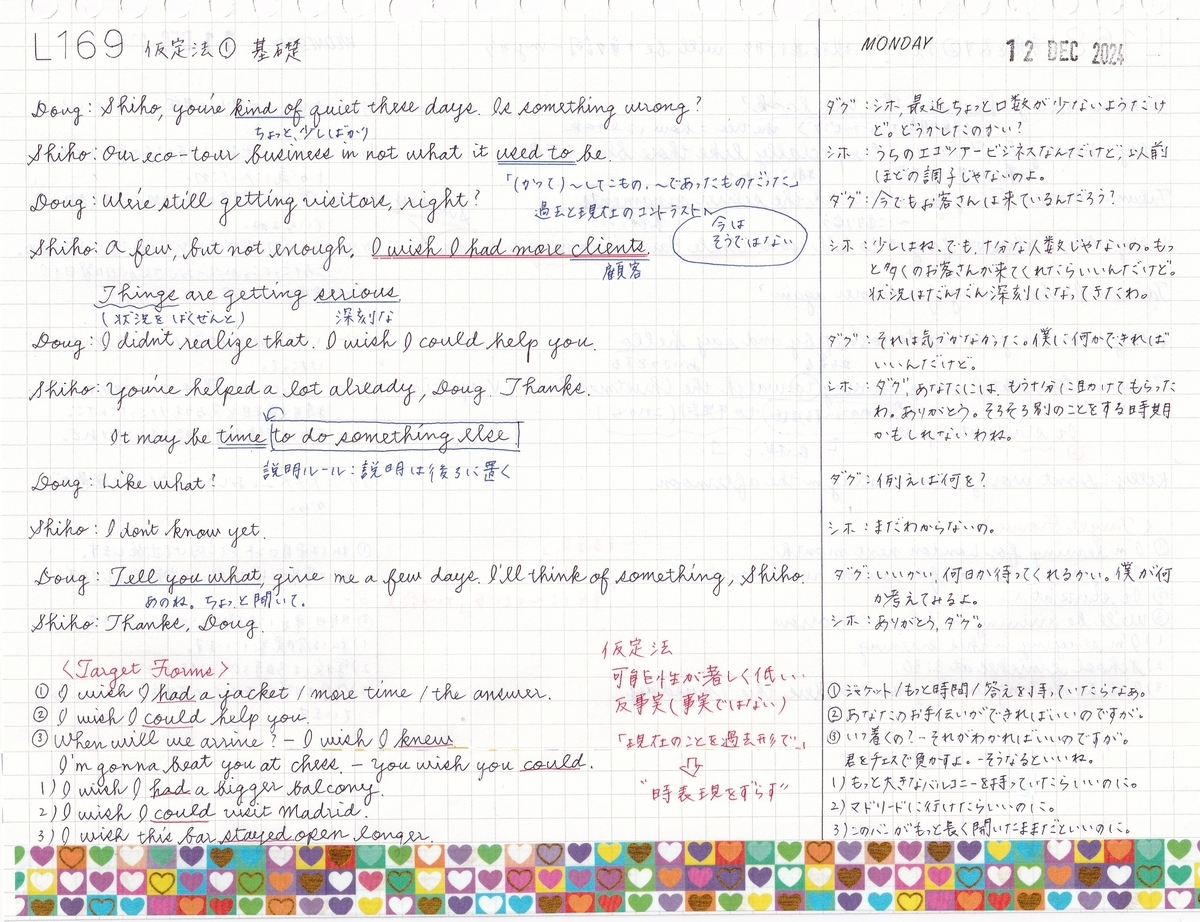 L169 仮定法① 基礎
MONDAY 12 DEC 2024
Doug: Shiho, you're kind of quiet these days. Is something wrong?
ちょっと、少しばかり
Shiho: Our eco-tour business in not what it used to be.
「(かつて)〜したもの、〜であったものだった」
Doug: We're still getting visitors, right?
過去と現在のコントラスト
今は
そうではない
Shiho: A few, but not enough. I wish I had more clients.
顧客
Things are getting serious.
(状況をばくぜんと)
深刻な
Doug: I didn't realize that. I wish I could help you.
Shiho: You're helped a lot already, Doug. Thanks.
It may be time to do something else.
説明ルール:説明は後ろに置く
Doug: Like what?
Shiho: I don't know yet.
Doug: Tell you what, give me a few days. I'll think of something, Shiho.
あのね。ちょっと聞いて。
Shiho: Thanks, Doug.
<Target Forms>
① I wish I had a jacket / more time / the answer.
② I wish I could help you.
③ When will we arrive? - I wish I knew.
I'm gonna beat you at chess. - You wish you could.
1) I wish I had a bigger balcony.
2) I wish I could visit Madrid.
3) I wish this bar stayed open longer.
仮定法
可能性が著しく低い
反事実(事実ではない)
「現在のことを過去形で」
"時表現をずらす"
ダグ:シホ,最近ちょっと口数が少ないようだけ
ど。どうかしたのかい?
シホ:うちのエコツアービジネスなんだけど,以前
ほどの調子じゃないのよ。
ダグ:今でもお客さんは来ているんだろう?
シホ:少しはね,でも,十分な人数じゃないの。もっ
と多くのお客さんが来てくれたらいいんだけど。
状況はだんだん深刻になってきたわ。
ダグ:それは気づかなかった。僕に何かできれば
いいんだけど。
シホ:ダグ,あなたには,もう十分に助けてもらった
わ。ありがとう。そろそろ別のことをする時期
かもしれないわね。
ダグ:例えば何を?
シホ:まだわからないの。
ダグ:いいかい,何日か待ってくれるかい。僕が何
か考えてみるよ。
シホ:ありがとう,ダグ。
①ジャケット/もっと時間/答えを持っていたらなあ。
②あなたのお手伝いができればいいのですが。
③いつ着くの?-それがわかればいいのですが。
君をチェスで負かすよ。-そうなるといいね。
1)もっと大きなバルコニーを持っていたらいいのに。
2)マドリードに行けたらいいのに。
3)このバーがもっと長く開いたままだといいのに。